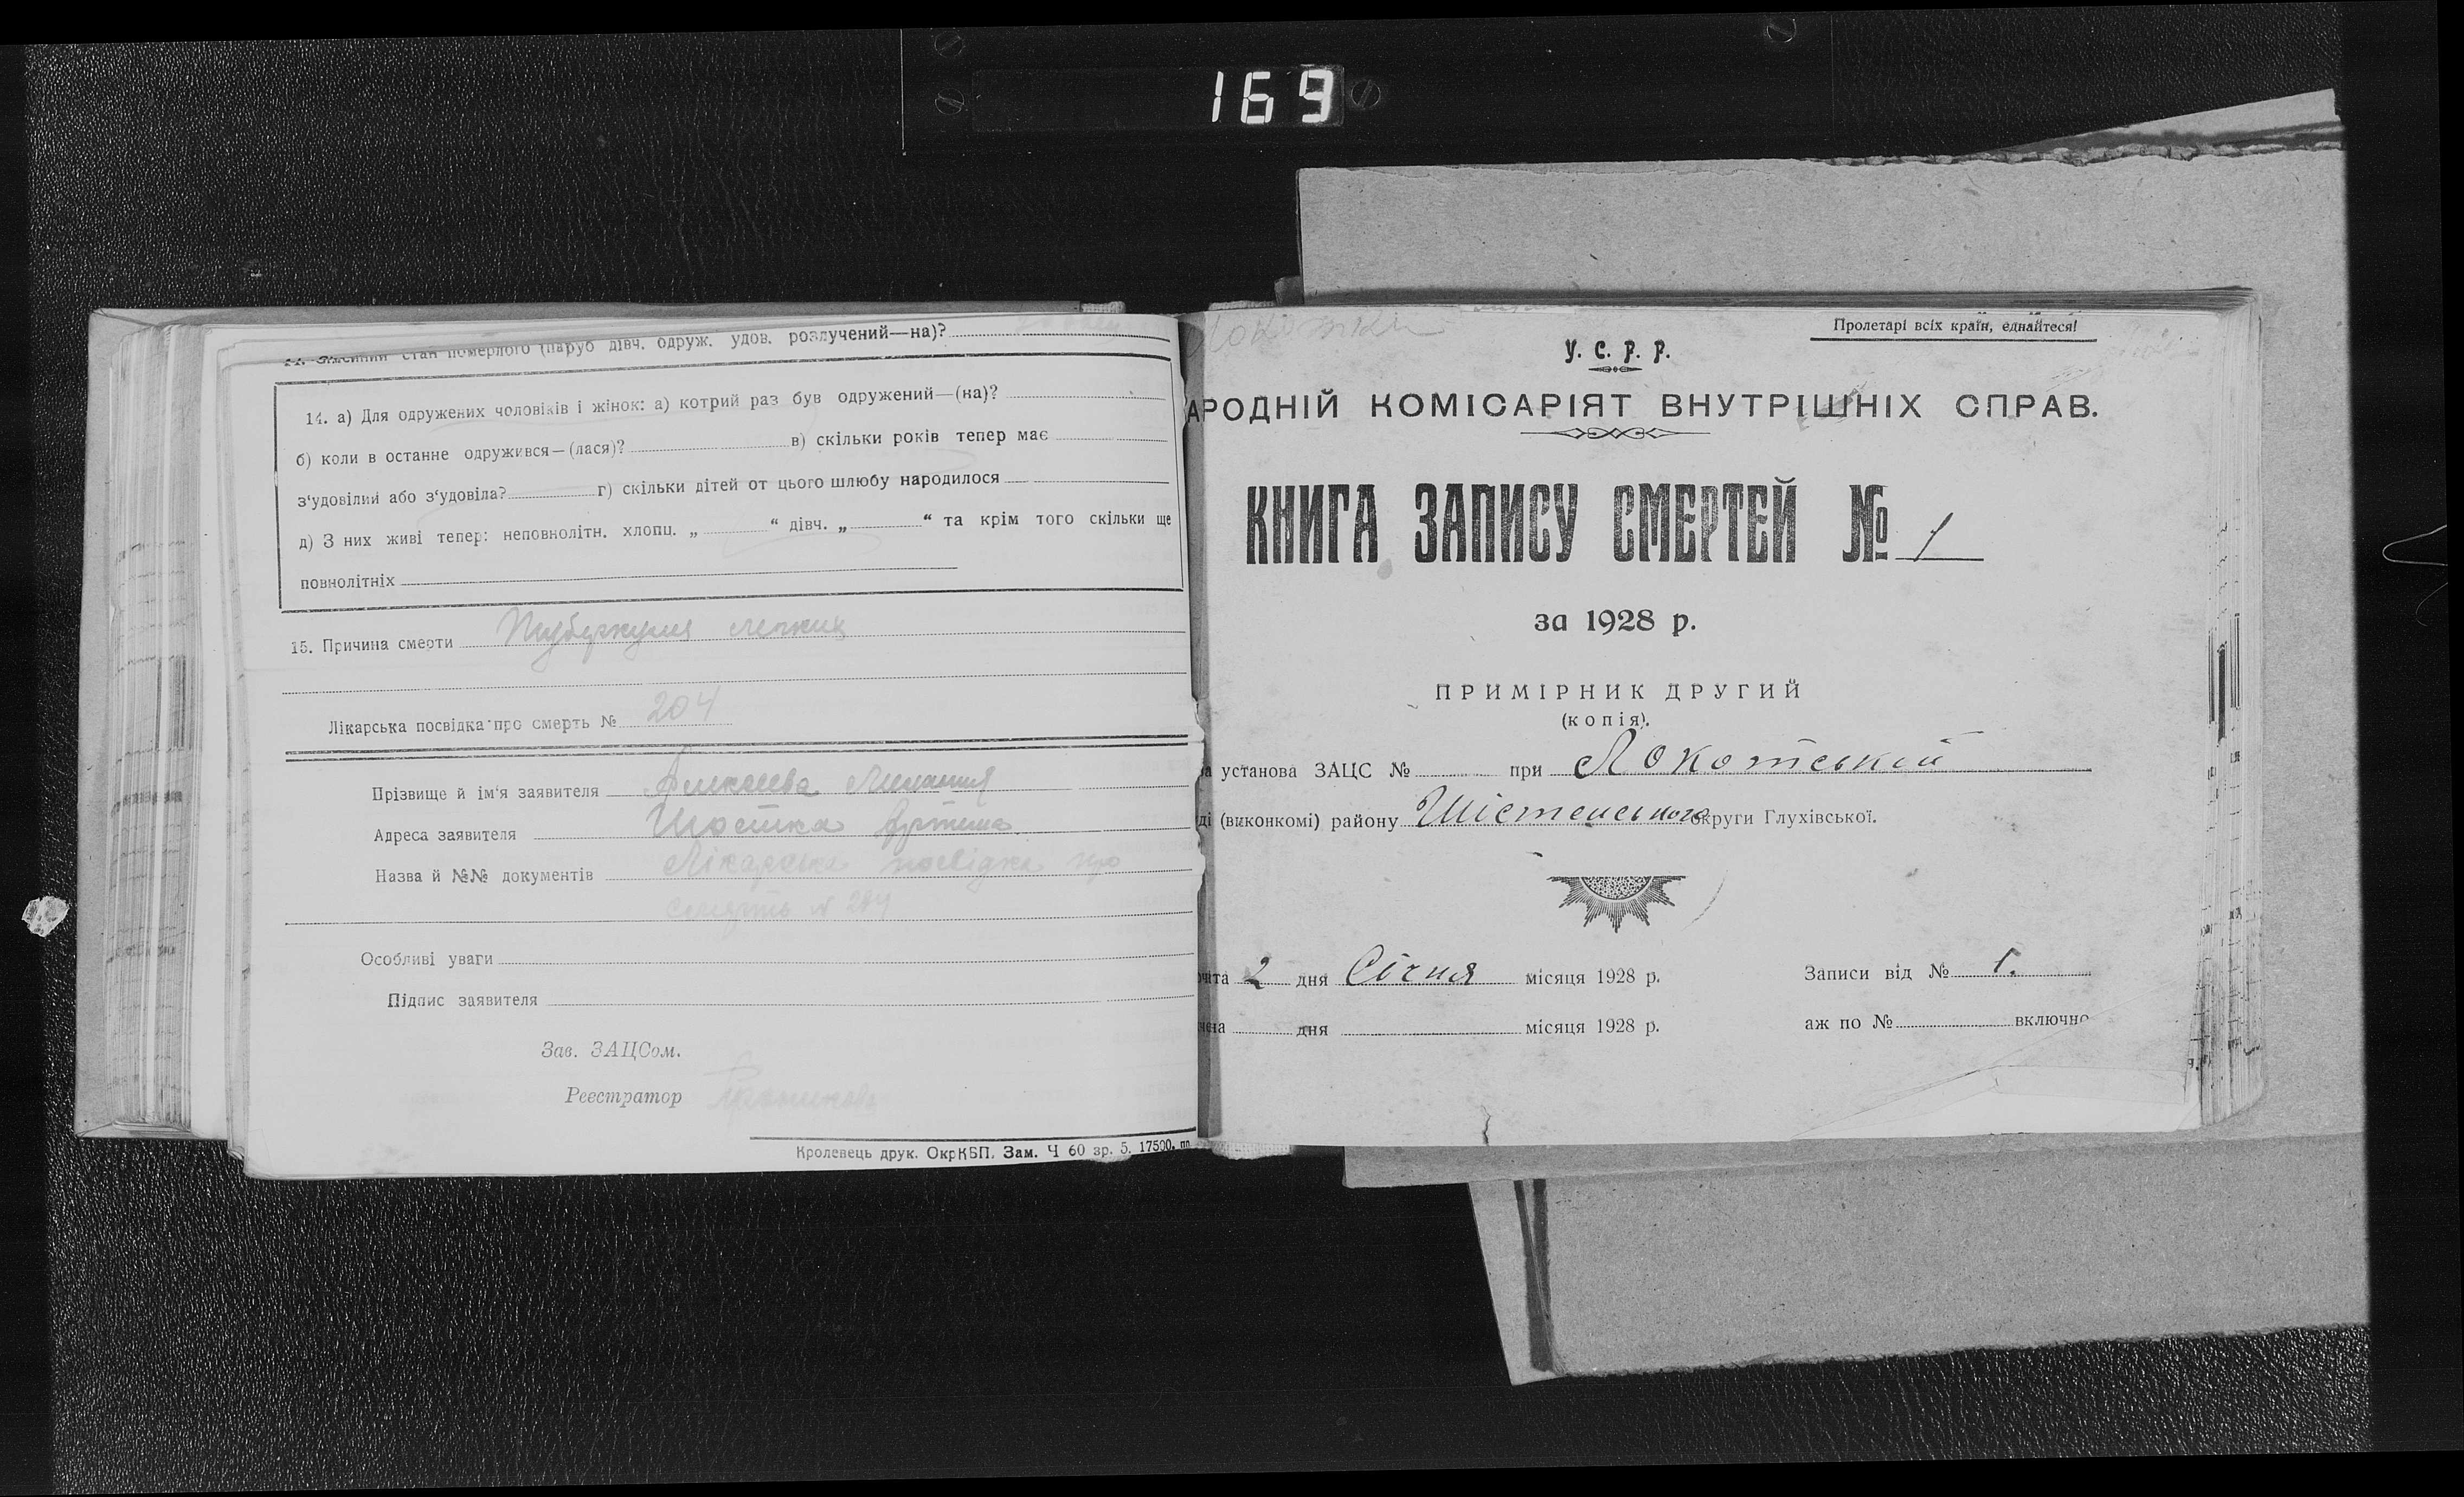 169
14. Сімейний стан померлого (паруб дівч. одруж. удов. розлучений—на)?
14. а) Для одружених чоловіків і жінок: а) котрий раз був одружений—(на)?
б) коли в останне одружився—(лася)? в) скільки років тепер має
з‘удовілий або з‘удовіла? г) скільки дітей от цього шлюбу народилося
д) З них живі тепер: неповнолітн. хлопц. „ “ дівч. „ “ та крім того скільки ще
повнолітніх
15. Причина смерти Туберкулез легких
Лікарська посвідка про смерть № 204
Прізвище й ім‘я заявителя
Адреса заявителя Шостка Артема
Назва й №№ документів Лікарська посвідка про
смерть № 204
Особливі уваги
Підпис заявителя
Зав. ЗАЦСом.
Реєстратор
Кролевець друк. ОкрКВП. Зам. Ч 60 зр. 5. 17500. пр
Пролетарі всіх країн, єднайтеся!
У. С. Р. Р.
АРОДНІЙ КОМІСАРІЯТ ВНУТРІШНІХ СПРАВ.
КНИГА ЗАПИСУ СМЕРТЕЙ № 1
за 1928 р.
ПРИМІРНИК ДРУГИЙ
(копія).
а установа ЗАЦС № при Локотській
ді (виконкомі) району Шістенського округи Глухівської.
чата 2 дня Січня місяця 1928 р. Записи від № 1.
чена дня місяця 1928 р. аж по № включно